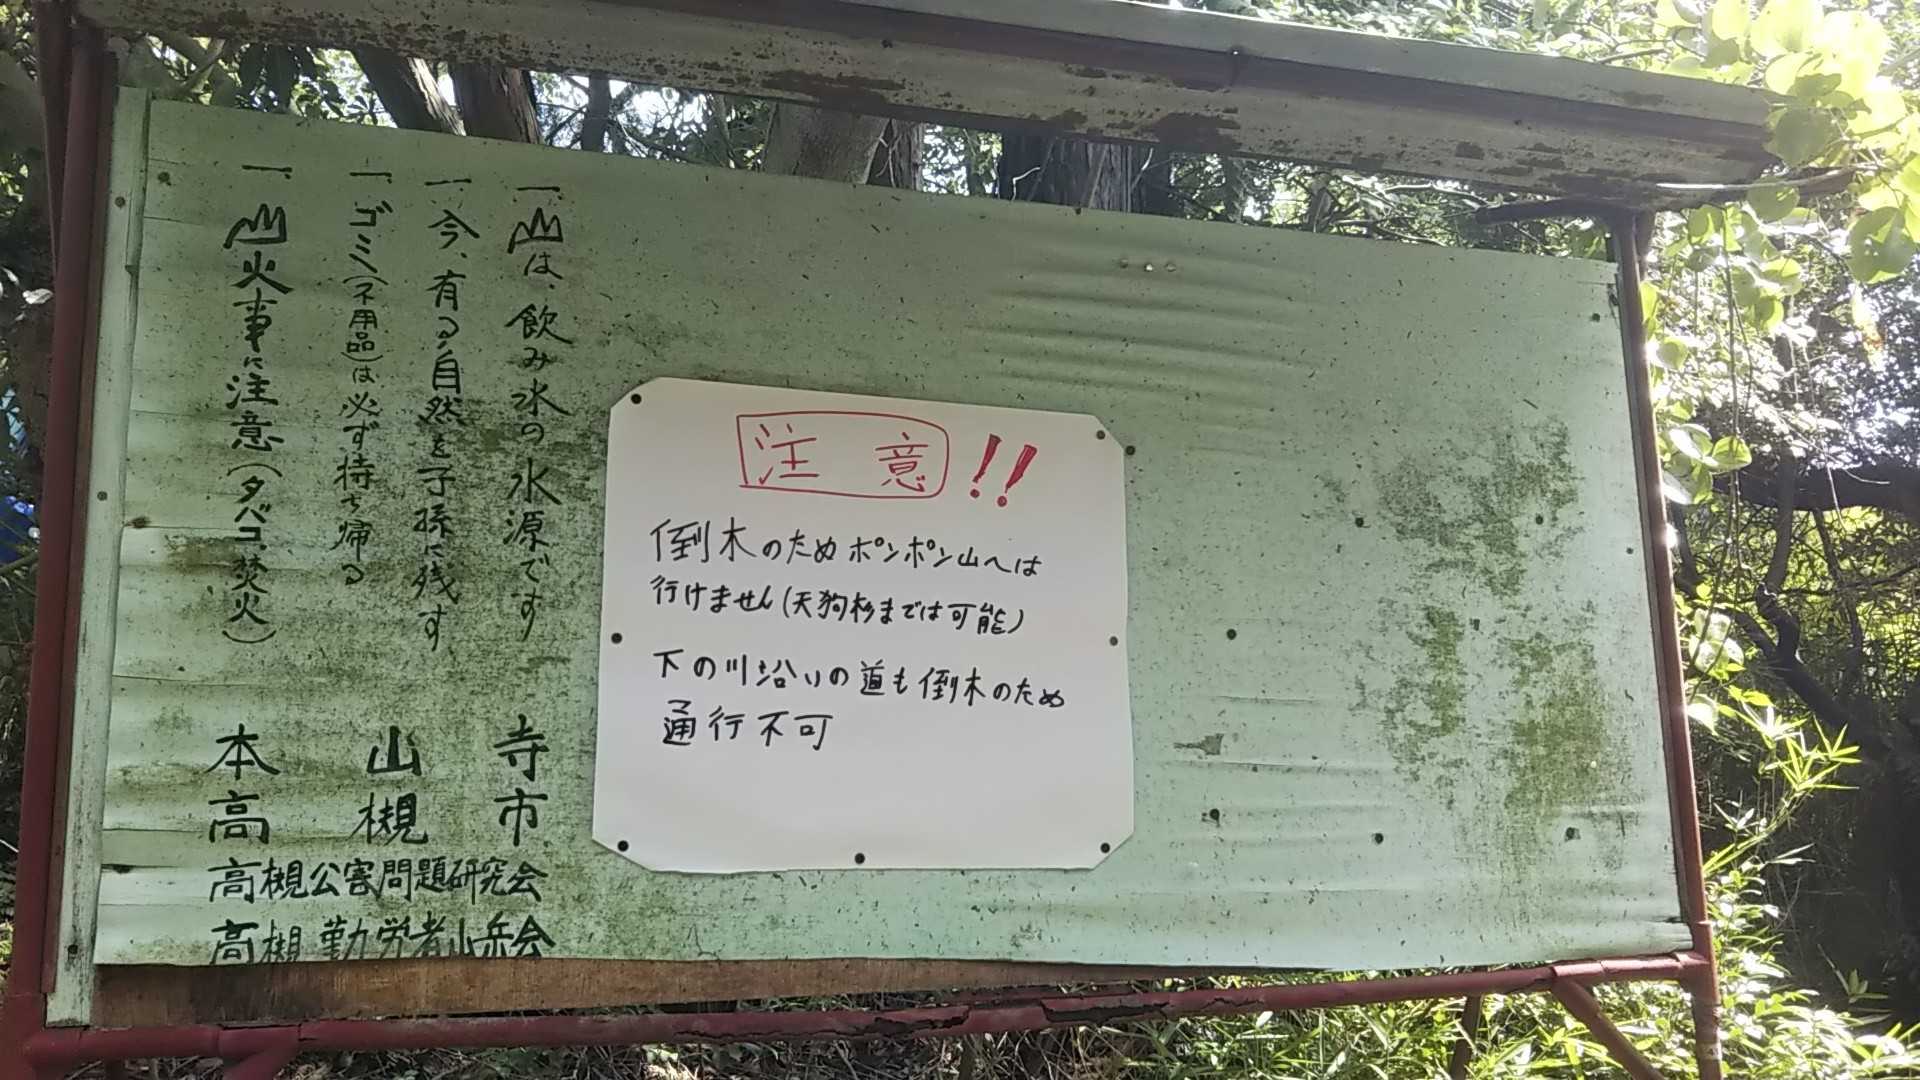 一、山は、飲み水の水源です
一、今、有る自然を子孫に残す
一、ゴミ(不用品)は必ず持ち帰る
一、山火事に注意(タバコ、焚火)
本山寺
高槻市
高槻公害問題研究会
高槻勤労者山岳会
注意!!
倒木のためポンポン山へは
行けません(天狗杉までは可能)
下の川沿いの道も倒木のため
通行不可